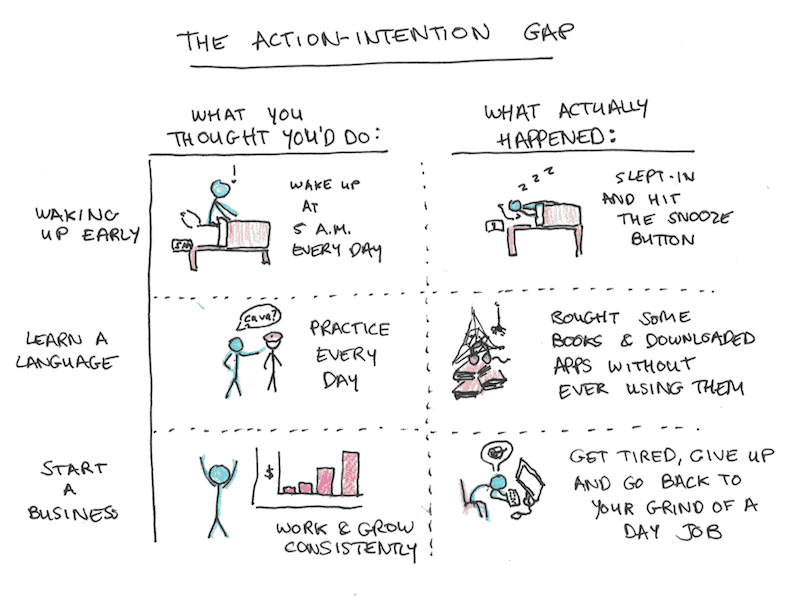 THE ACTION-INTENTION GAP
WHAT YOU
THOUGHT YOU'D DO:
WHAT ACTUALLY
HAPPENED:
WAKING
UP EARLY
!
WAKE UP
AT
5 A.M.
EVERY DAY
5 AM
z z z
SLEPT-IN
AND HIT
THE SNOOZE
BUTTON
LEARN A
LANGUAGE
ÇA VA?
PRACTICE
EVERY
DAY
BOUGHT SOME
BOOKS & DOWNLOADED
APPS WITHOUT
EVER USING THEM
START
A
BUSINESS
$
WORK & GROW
CONSISTENTLY
GET TIRED, GIVE UP
AND GO BACK TO
YOUR GRIND OF A
DAY JOB